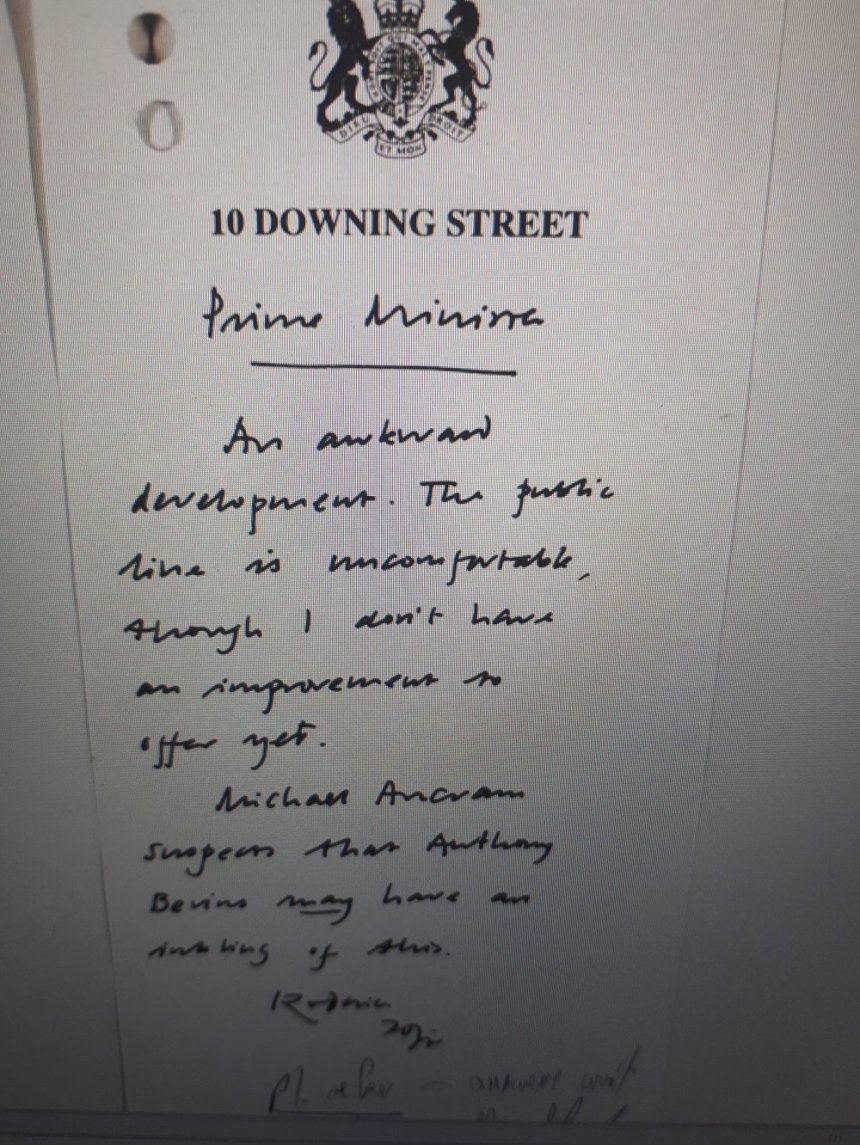 DIEU
DROIT
ET MON
10 DOWNING STREET
Prime Minister
An awkward
development. The public
line is uncomfortable,
though I don't have
an improvement to
offer yet.
Michael Ancram
suspects that Anthony
Bevins may have an
inkling of this.
Roderic
answers